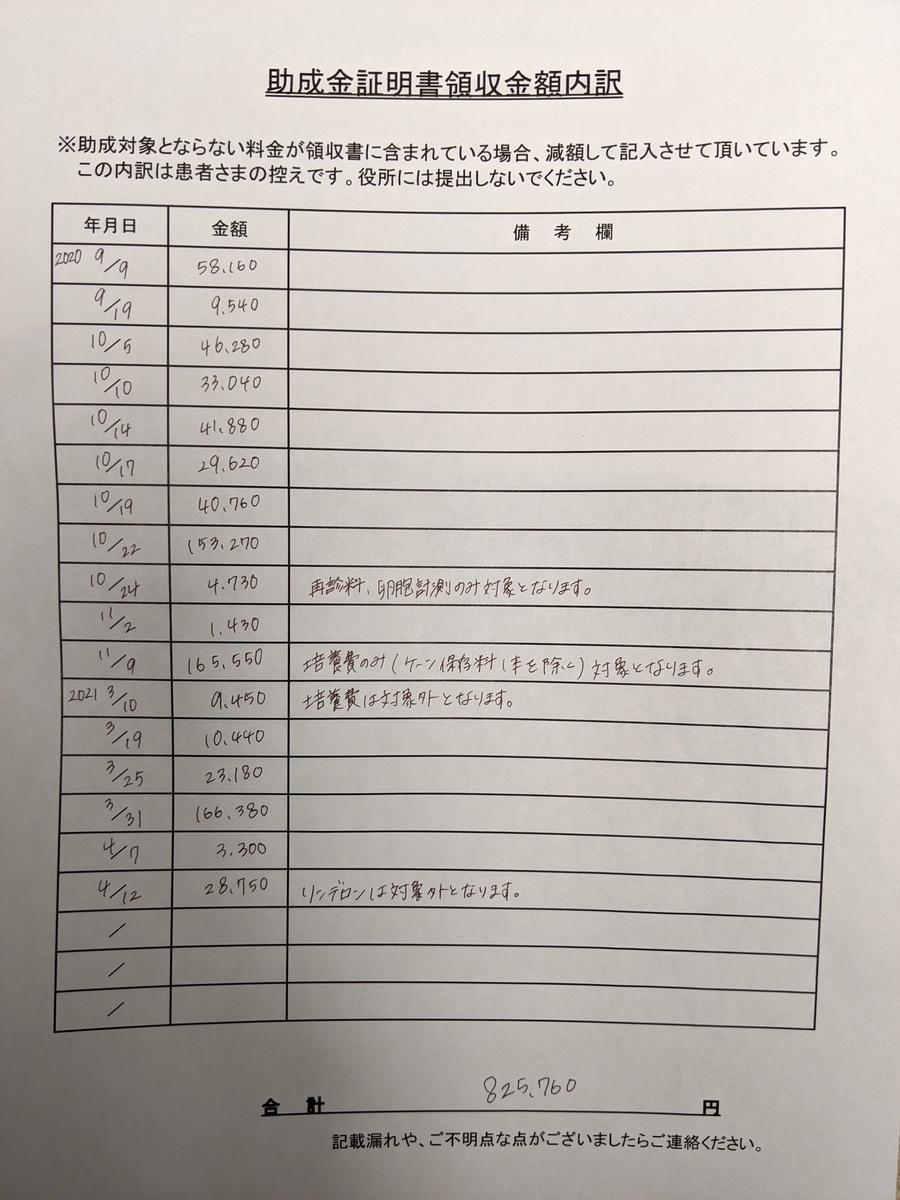 助成金証明書領収金額内訳
※助成対象とならない料金が領収書に含まれている場合、減額して記入させて頂いています。
この内訳は患者さまの控えです。役所には提出しないでください。
年月日 金額 備考欄
2020 9/9 58.160
9/19 9.540
10/5 46.280
10/10 33.040
10/14 41.880
10/17 29.620
10/19 40.760
10/22 153.270
10/24 4.730 再診料、卵胞計測のみ対象となります。
11/2 1.430
11/9 165.550 培養費のみ(ケーン保存料1本を除く)対象となります。
2021 3/10 9.450 培養費は対象外となります。
3/19 10.440
3/25 23.180
3/31 166.380
4/7 3.300
4/12 28.750 リンデロンは対象外となります。
/
/
/
合計 825.760 円
記載漏れや、ご不明点な点がございましたらご連絡ください。